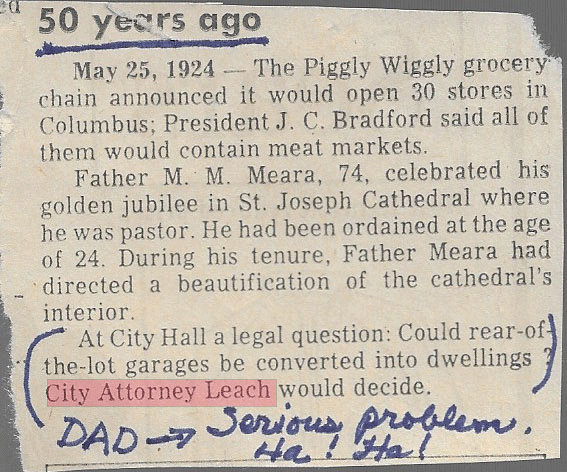 50 years ago
May 25, 1924 — The Piggly Wiggly grocery
chain announced it would open 30 stores in
Columbus; President J. C. Bradford said all of
them would contain meat markets.
Father M. M. Meara, 74, celebrated his
golden jubilee in St. Joseph Cathedral where
he was pastor. He had been ordained at the age
of 24. During his tenure, Father Meara had
directed a beautification of the cathedral's
interior.
At City Hall a legal question: Could rear-of-
the-lot garages be converted into dwellings ?
City Attorney Leach would decide.
DAD → Serious problem.
Ha! Ha!